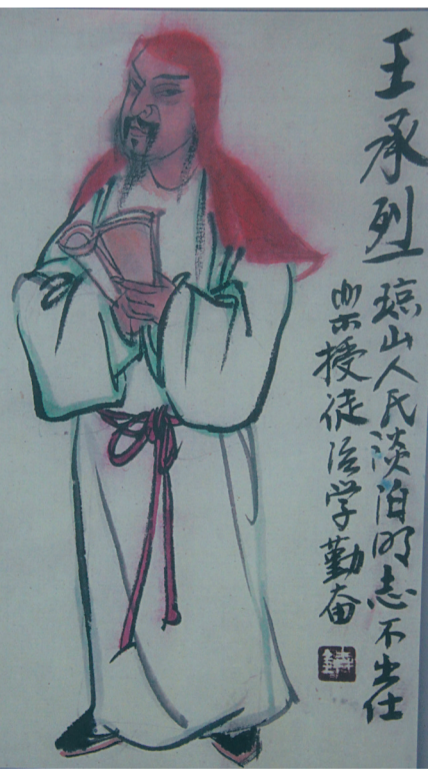 王承烈
琼山人民淡泊明志不出仕
樂授徒治学勤奋